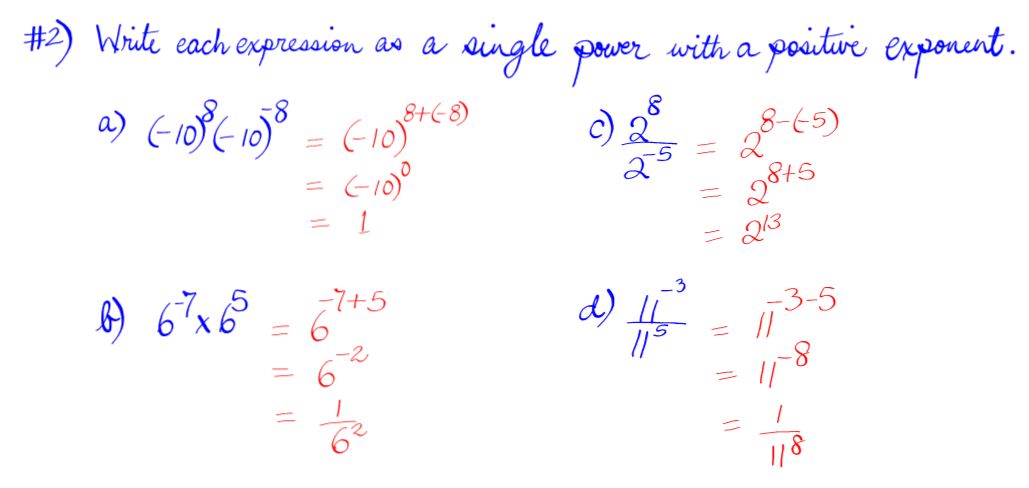 #2) Write each expression as a single power with a positive exponent.
a) (-10)⁸(-10)⁻⁸ = (-10)⁸⁺⁽⁻⁸⁾
= (-10)⁰
= 1
b) 6⁻⁷ x 6⁵ = 6⁻⁷⁺⁵
= 6⁻²
= 1/6²
c) 2⁸/2⁻⁵ = 2⁸⁻⁽⁻⁵⁾
= 2⁸⁺⁵
= 2¹³
d) 11⁻³/11⁵ = 11⁻³⁻⁵
= 11⁻⁸
= 1/11⁸